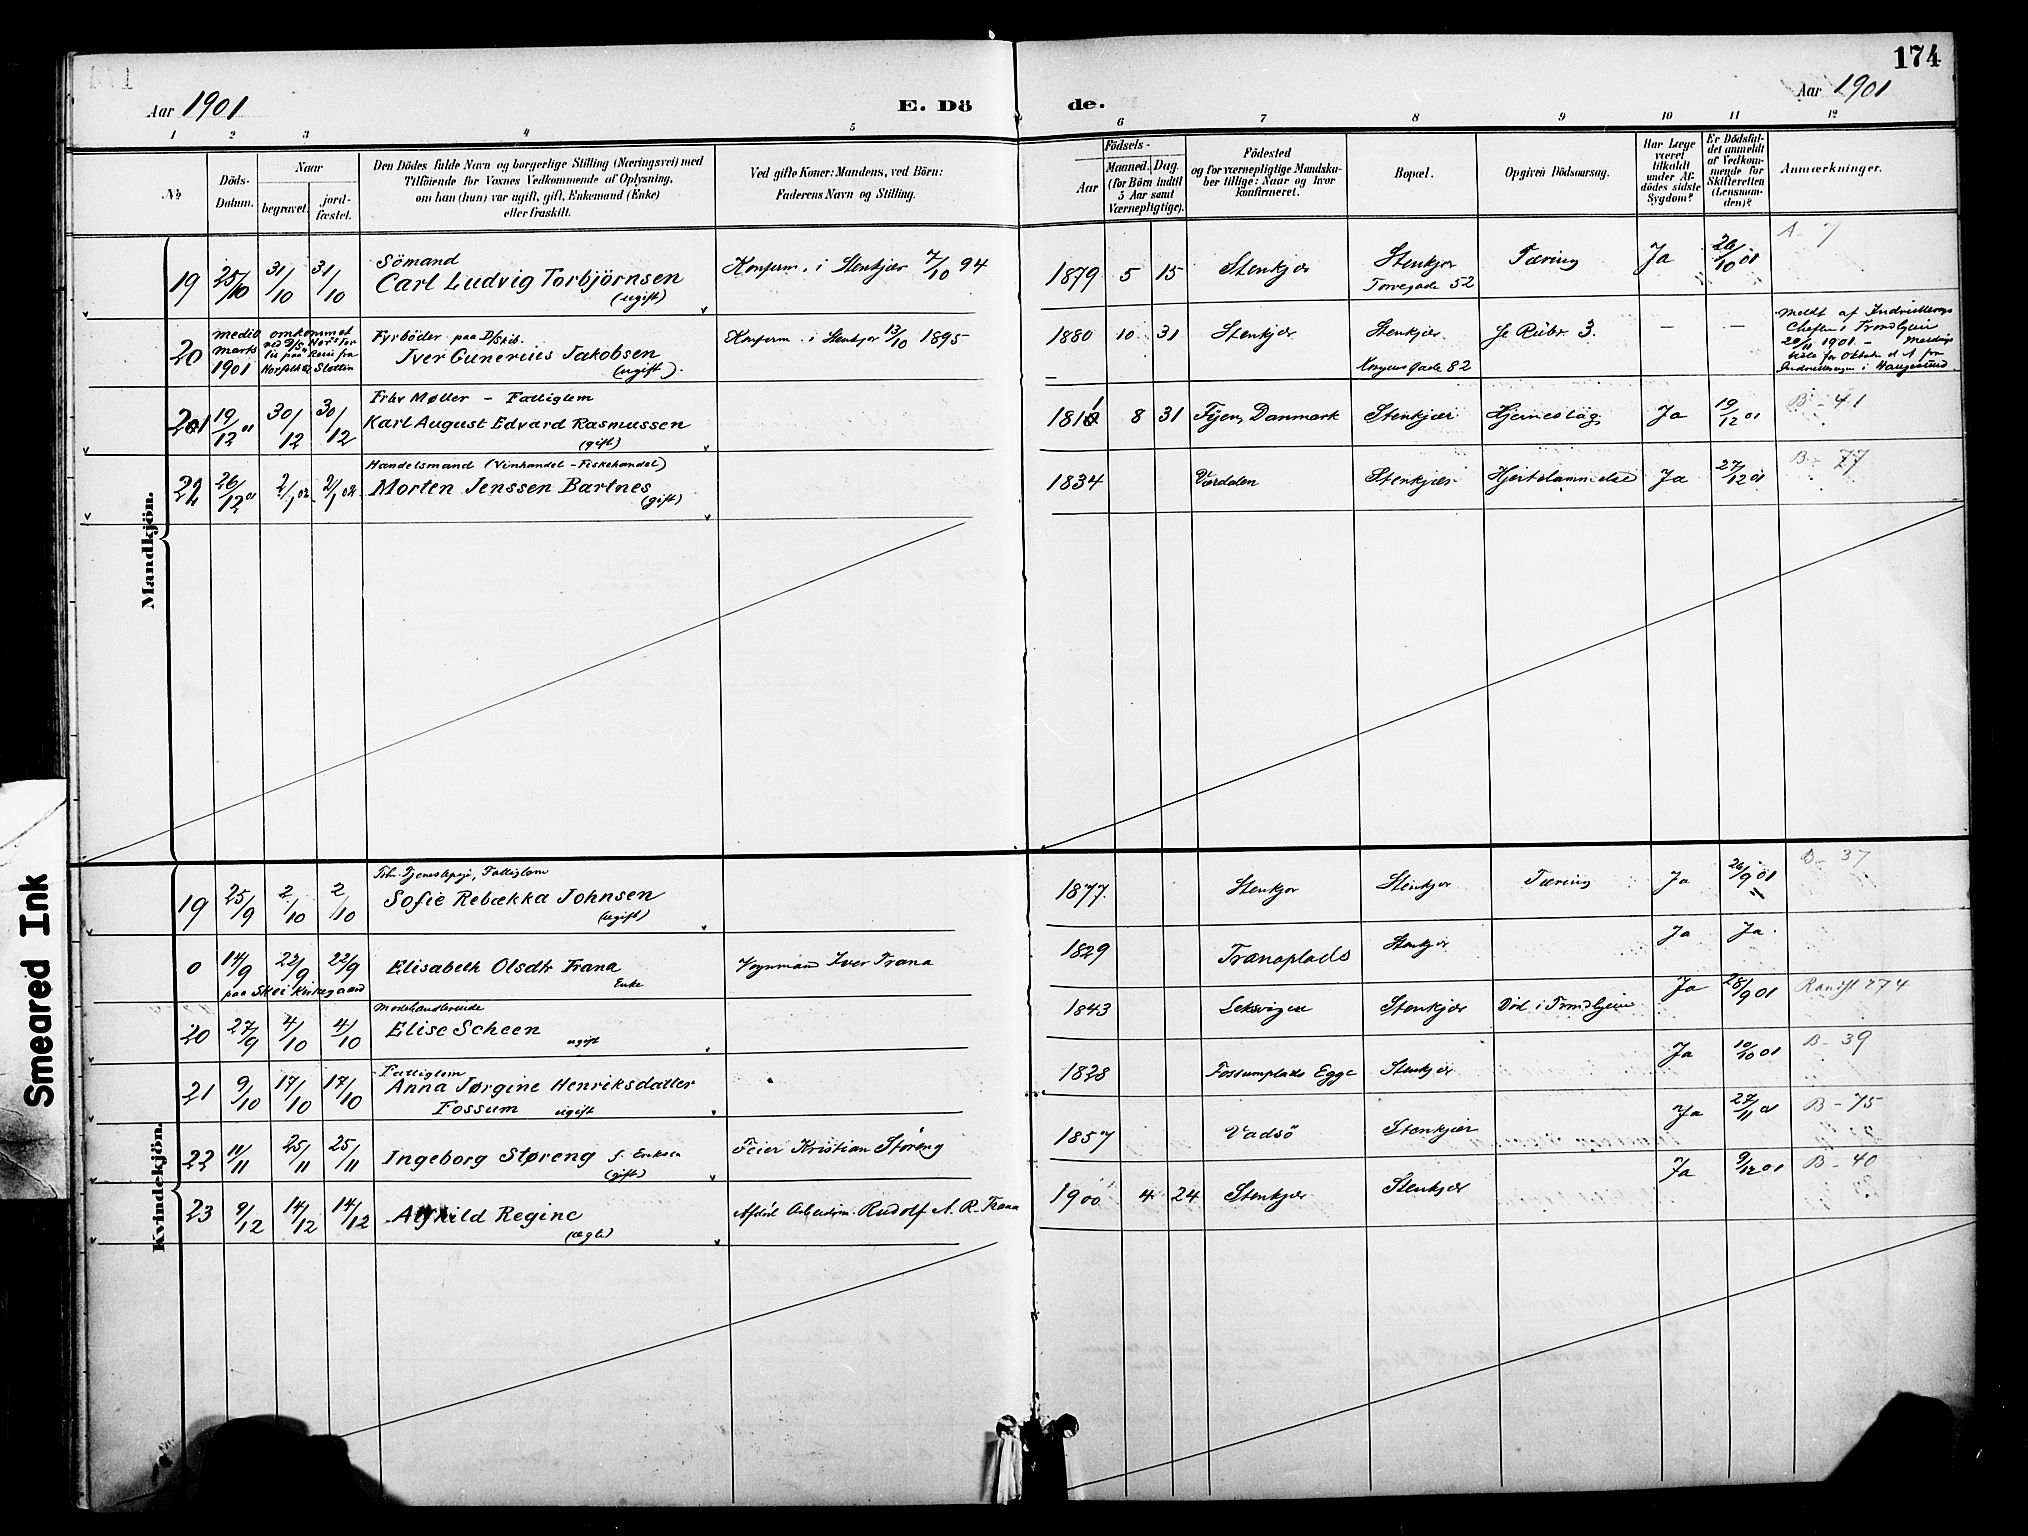 174
Aar 1901
E. Dö
de.
Aar 1901
1 2 3 4 5 6 7 8 9 10 11 12
No
Döds-
Datum.
Naar
begravet.
jord-
fæstet.
Den Dödes fulde Navn og borgerlige Stilling (Næringsvei) med
Tilföiende for Voxnes Vedkommende af Oplysning,
om han (hun) var ugift, gift, Enkemand (Enke)
eller fraskilt.
Ved gifte Koner: Mandens, ved Börn:
Faderens Navn og Stilling.
Födsels-
Aar
Maaned.
Dag.
(for Börn indtil
5 Aar samt
Værnepligtige).
Födested
og for værnepligtige Mandsku-
ber tillige: Naar og hvor
konfirmeret.
Bopæl.
Opgiven Dödsaarsag.
Har Læge
været
tilkaldt
under Af-
dödes sidste
Sygdom?
Er Dödsfal-
det anmeldt
af Vedkom-
mende for
Skifteretten
(Lensman-
den)?
Anmærkninger.
Mandkjön.
Sömand
19 25/10 31/10 31/10 Carl Ludvig Torbjörnsen
(ugift)
Konferm. i Stenkjær 7/10 94
1879 5 15 Stenkjær Stenkjær Tæring Ja 26/10 01 A - 7
Torvegade 52
20 medio marts 1901 omkommet
Fyrböder paa D/Skib.
Iver Gunerius Jakobsen
(ugift).
Konferm. i Stenkjær 13/10 1895
1880 10 31 Stenkjær Stenkjær Se Rubr 3. - -
Kongens gade 82
Meldt af Indrullerings
Chefen i Trondhjem
20/11 1901 -
Haugesund
Fhv Møller - Fattiglem
21 19/12 01 30/12 30/12 Karl August Edvard Rasmussen
(gift)
181 8 31 Fyen, Danmark Stenkjær Hjerneslag Ja 19/12 01 B - 41
Handelsmand (Vinhandel - Fiskehandel)
22 26/12 01 2/1 02 2/1 02 Morten Jenssen Bartnes
(gift)
1834 Værdalen Stenkjær Hjertelammelse Ja 27/12 01 B - 77
Kvindekjön.
Fattiglem
19 25/9 2/10 2/10 Sofie Rebækka Johnsen
(ugift)
1877. Stenkjær Stenkjær Tæring Ja 26/9 01 B - 37
0 14/9 22/9 22/9 Elisabeth Olsdtr Trana
paa Skei Kirkegaard Enke
Vognmand Iver Trana
1829 Tranaplads Stenkjær Ja Ja
Modehandlerinde
20 27/9 4/10 4/10 Elise Scheen
ugift
1843 Leksvigen Stenkjær Död i Trondhjem Ja 28/9 01 274
Fattiglem
21 9/10 17/10 17/10 Anna Jørgine Henriksdatter
Fossum ugift
1828 Fossumplads Egge Stenkjær Ja 10/10 01 B - 39
22 11/11 25/11 25/11 Ingeborg Støreng f. Eriksen
(gift)
Feier Kristian Støreng
1857 Vadsö Stenkjær Ja 27/11 01 B - 75
23 9/12 14/12 14/12 Alfhild Regine
(ægte)
Afdöd Arbeidsm. Rudolf A. R. Trana
1900 4 24 Stenkjær Stenkjær Ja 9/12 01 B - 40
Smeared Ink